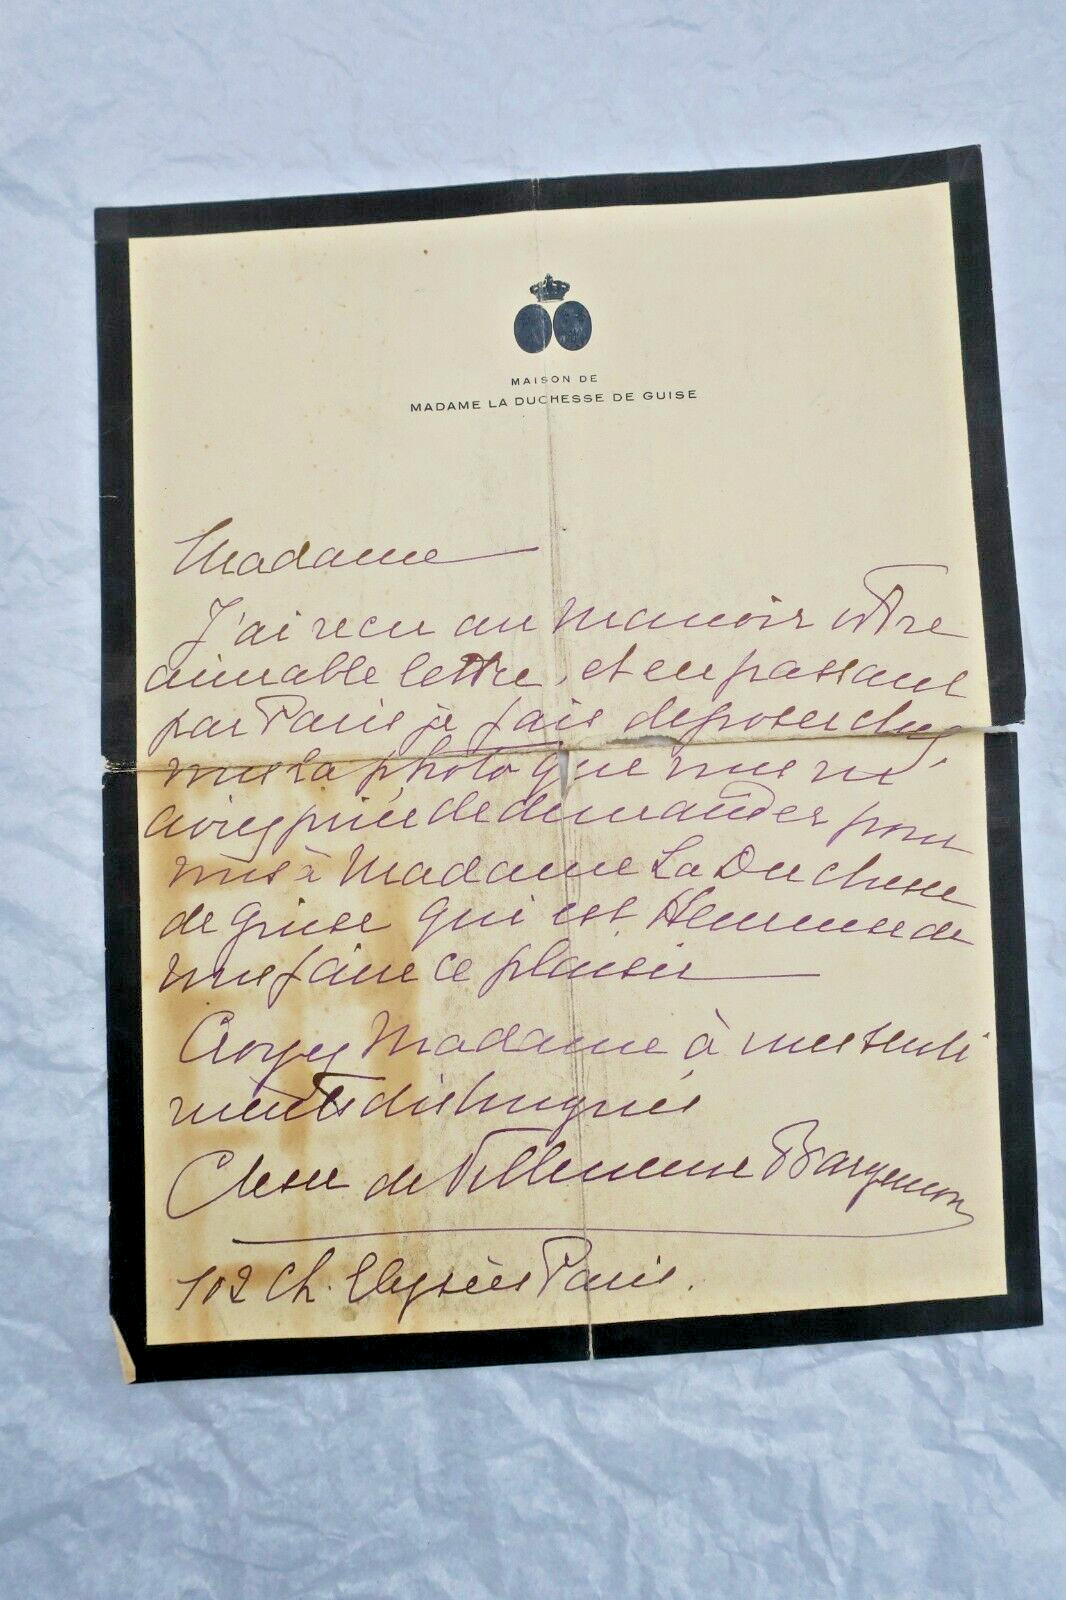 MAISON DE
MADAME LA DUCHESSE DE GUISE
Madame
J'ai reçu au Manoir votre
aimable lettre, et en passant
par Paris je fais déposer chez
vous la photo que vous m'
aviez priée de demander pour
vous à Madame La Duchesse
de Guise qui est Heureuse de
vous faire ce plaisir
Croyez Madame à mes senti
ments distingués
de Villeneuve Bargemon
102 Ch. Elysées Paris.